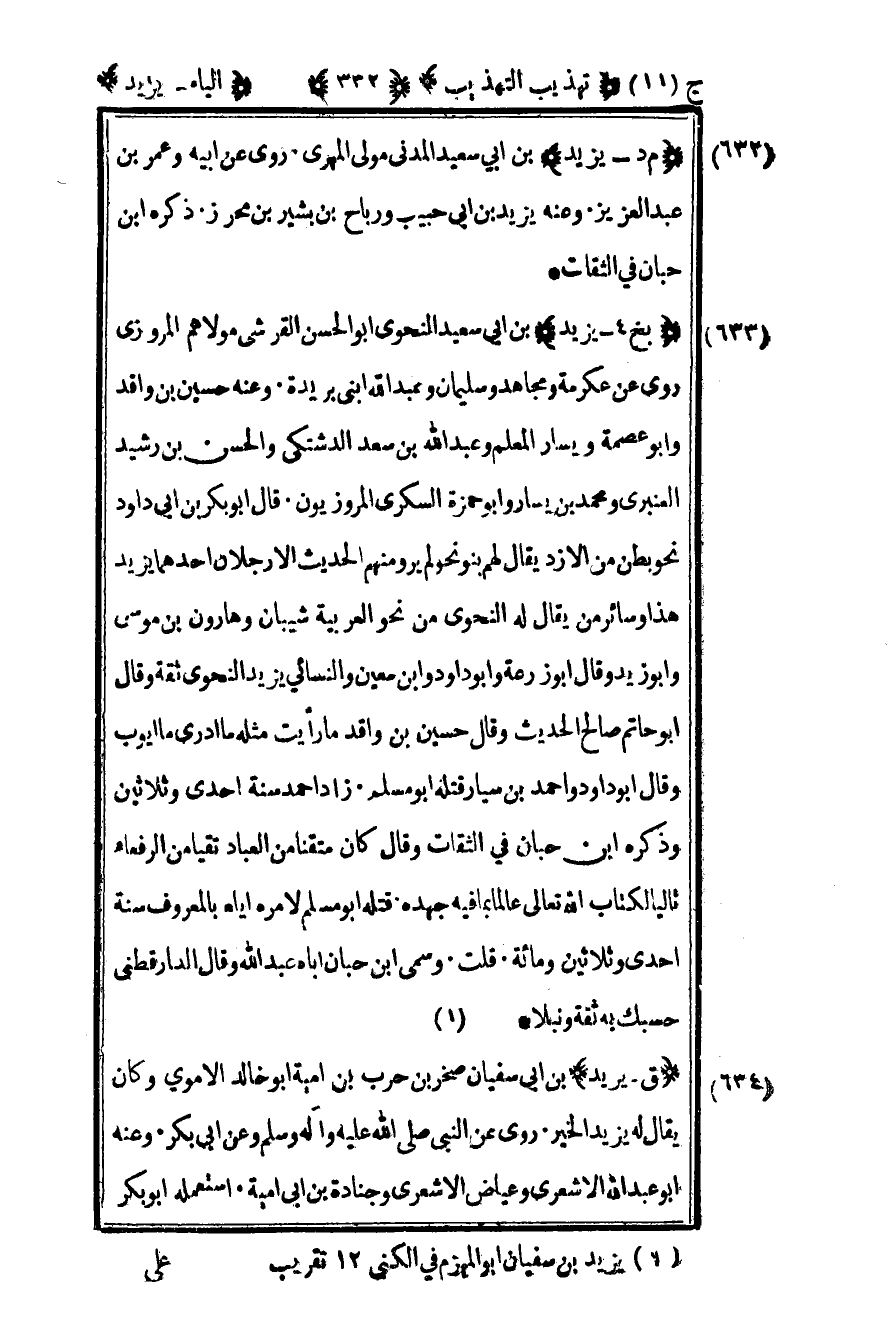 ج (١١) ﴿ تهذيب التهذيب ﴾ ﴿ ٣٣٢ ﴾ ﴿ الياء - يزيد ﴾
(٦٣٢) ﴿ م د - يزيد ﴾ بن ابي سعيد المدنى مولى المهرى · روى عن ابيه و عمر بن
عبد العزيز · وعنه يزيد بن ابى حبيب ورباح بن بشير بن محرز · ذكره ابن
حبان في الثقات •
(٦٣٣) ﴿ بخ ٤ - يزيد ﴾ بن ابي سعيد النحوى ابو الحسن القرشى مولاهم المروزى
روى عن عكرمة ومجاهد وسليمان وعبد الله ابنى بريدة · وعنه حسين بن واقد
وابو عصمة ويسار المعلم وعبد الله بن سعد الدشتكي والحسن بن رشيد
العنبرى ومحمد بن يسار وابو حمزة السكرى المروزيون · قال ابو بكر بن ابى داود
نحو بطن من الازد يقال لهم بنو نحو لم يرو منهم الحديث الا رجلان احدهما يزيد
هذا وسائر من يقال له النحوى من نحو العربية شيبان وهارون بن موسى
وابو زيد وقال ابو زرعة وابو داود وابن معين والنسائي يزيد النحوى ثقة وقال
ابو حاتم صالح الحديث وقال حسين بن واقد ما رأيت مثله ما ادرى ما ايوب
وقال ابو داود واحمد بن سيار قتله ابو مسلم · زاد احمد سنة احدى وثلاثين
وذكره ابن حبان في الثقات وقال كان متقنا من العباد تقيا من الرفعاء
تاليا لكتاب الله تعالى عالما بما فيه جهده · قتله ابو مسلم لامره اياه بالمعروف سنة
احدى وثلاثين ومائة · قلت · وسمى ابن حبان اباه عبد الله وقال الدارقطنى
حسبك به ثقة ونبلا • (١)
(٦٣٤) ﴿ ق - يزيد ﴾ بن ابي سفيان صخر بن حرب بن امية ابو خالد الاموي وكان
يقال له يزيد الخير · روى عن النبى صلى الله عليه وآله وسلم وعن ابى بكر · وعنه
ابو عبد الله الاشعرى وعياض الاشعرى وجنادة بن ابى امية · استعمله ابو بكر
(١) يزيد بن سفيان ابو المهزم في الكنى ١٢ تقريب
على